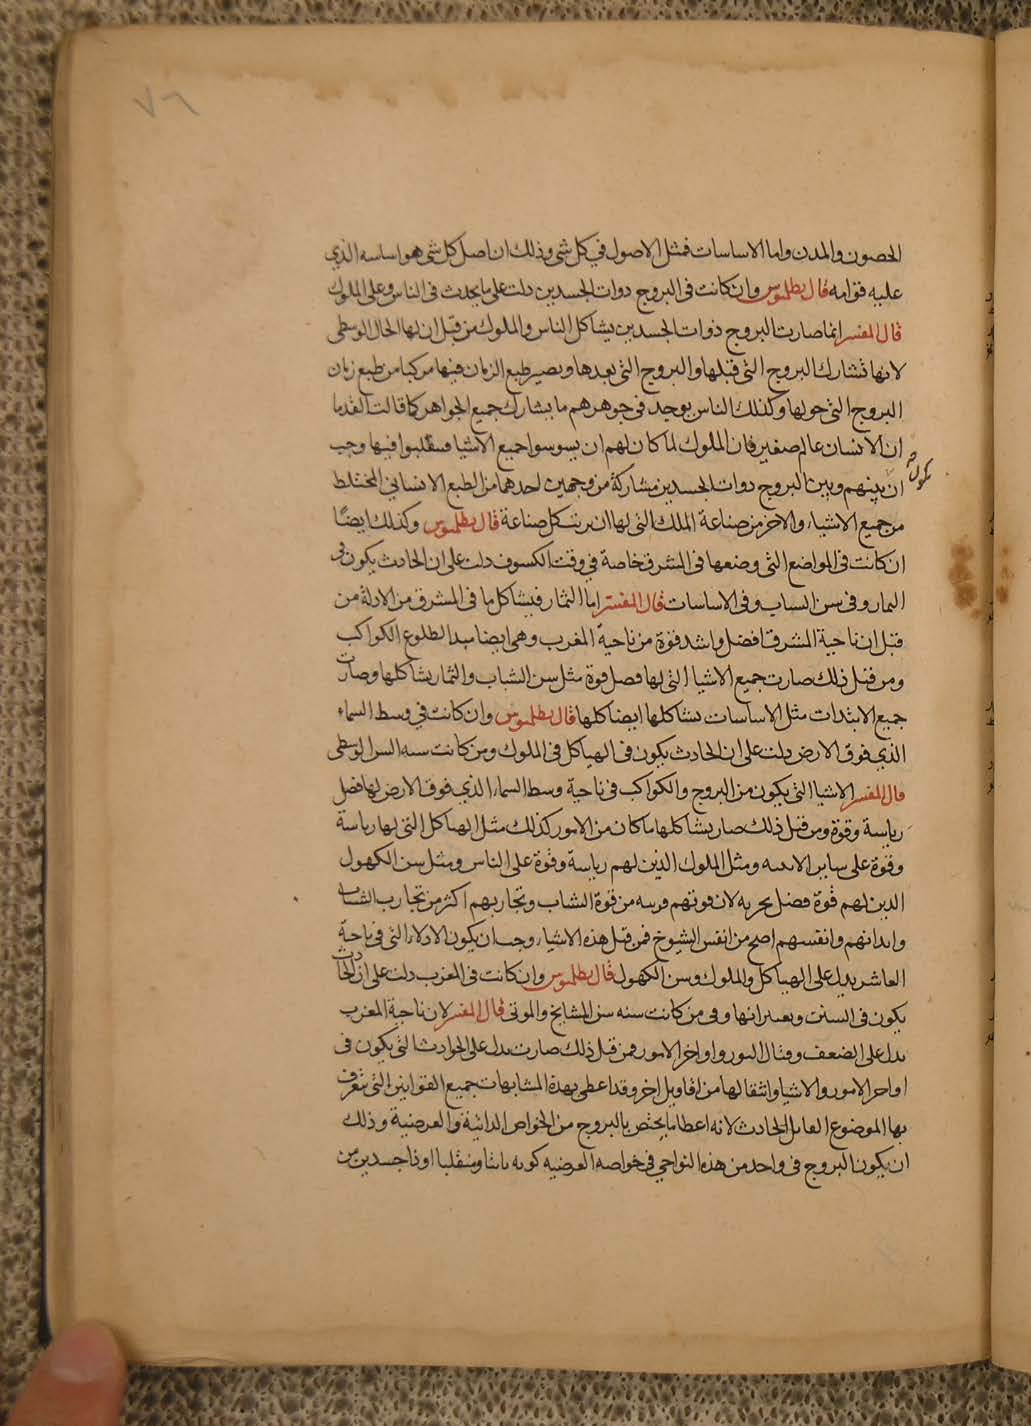 ٧٦
الحصون والمدن واما الاساسات فمثل الاصول في كل شى وذلك ان اصل كل شى هو اساسه الذي
عليه قوامه قال بطلميوس وان كانت فى البروج ذوات الجسدين دلت على ما يحدث فى الناس وعلى الملوك
قال المفسر انما صارت البروج ذوات الجسدين يشاكل الناس والملوك من قبل ان لها الحال الوسطى
لانها تشارك البروج التى قبلها والبروج التى بعدها ويصير طبع الزمان فيها مركبا من طبع زمان
البروج التى حولها وكذلك الناس يوجد فى جوهرهم ما يشارك جميع الجواهر كما قالت القدما
ان الانسان عالم صغير فان الملوك لما كان لهم ان يسوسوا جميع الاشيا فينقلبوا فيها وجب
يكون
ان بينهم وبين البروج ذوات الجسدين مشاركة من وجهين احدهما من الطبع الانسانى المختلط
من جميع الاشياء والاخر من صناعة الملك التى لها ان يتشكل صناعة قال بطلميوس وكذلك ايضًا
ان كانت فى المواضع التى وضعها فى المشرق خاصة في وقت الكسوف دلت على ان الحادث يكون فى
الثمار وفى سن الشباب وفى الاساسات قال المفسر اما الثمار فيشاكل ما فى المشرق من الادلة من
قبل ان ناحية المشرق افضل واشد قوة من ناحية المغرب وهى ايضا مبدا لطلوع الكواكب
ومن قبل ذلك صارت جميع الاشيا التى لها فضل قوة مثل سن الشباب والثمار يشاكلها وصارت
جميع الابتدات مثل الاساسات يشاكلها ايضا كلها قال بطلميوس وان كانت في وسط السماء
الذي فوق الارض دلت على ان الحادث يكون فى الهياكل فى الملوك ومن كانت سنه السن الوسطى
قال المفسر الاشيا التى يكون من البروج والكواكب فى ناحية وسط السماء الذي فوق الارض لها فضل
رياسة وقوة ومن قبل ذلك صار يشاكلها ما كان من الامور كذلك مثل الهياكل التى لها رياسة
وقوة على ساير الابنية ومثل الملوك الذين لهم رياسة وقوة على الناس ومثل سن الكهول
الذين لهم قوة فضل تجربة لان قوتهم قريبه من قوة الشباب وتجاربهم اكثر من تجارب الشباب
وابدانهم وانفسهم اصح من انفس الشيوخ فمن قبل هذه الاشياء وجب ان يكون الادلاء التى فى ناحية
العاشر يدل على الهياكل والملوك وسن الكهول قال بطلميوس وان كانت فى المغرب دلت على ان الحادث
يكون فى السنن وتغييراتها وفى من كانت سنه سن المشايخ والموتى قال المفسر لان ناحية المغرب
يدل على الضعف واواخر الامور فمن قبل ذلك صارت تدل على الحوادث التى يكون فى
اواخر الامور والاشيا وانتقالها من اقاويل اخر وقد اعطى بهذه المشابهات جميع القوانين التى يتعرف
بها الموضوع القابل الحادث لانه اعطا ما يختص بالبروج من الخواص الذاتية والعرضية وذلك
ان يكون البروج فى واحد من هذه النواحي فى خواصه العرضيه كونه ثابتا ومنقلبا او ذا جسدين من